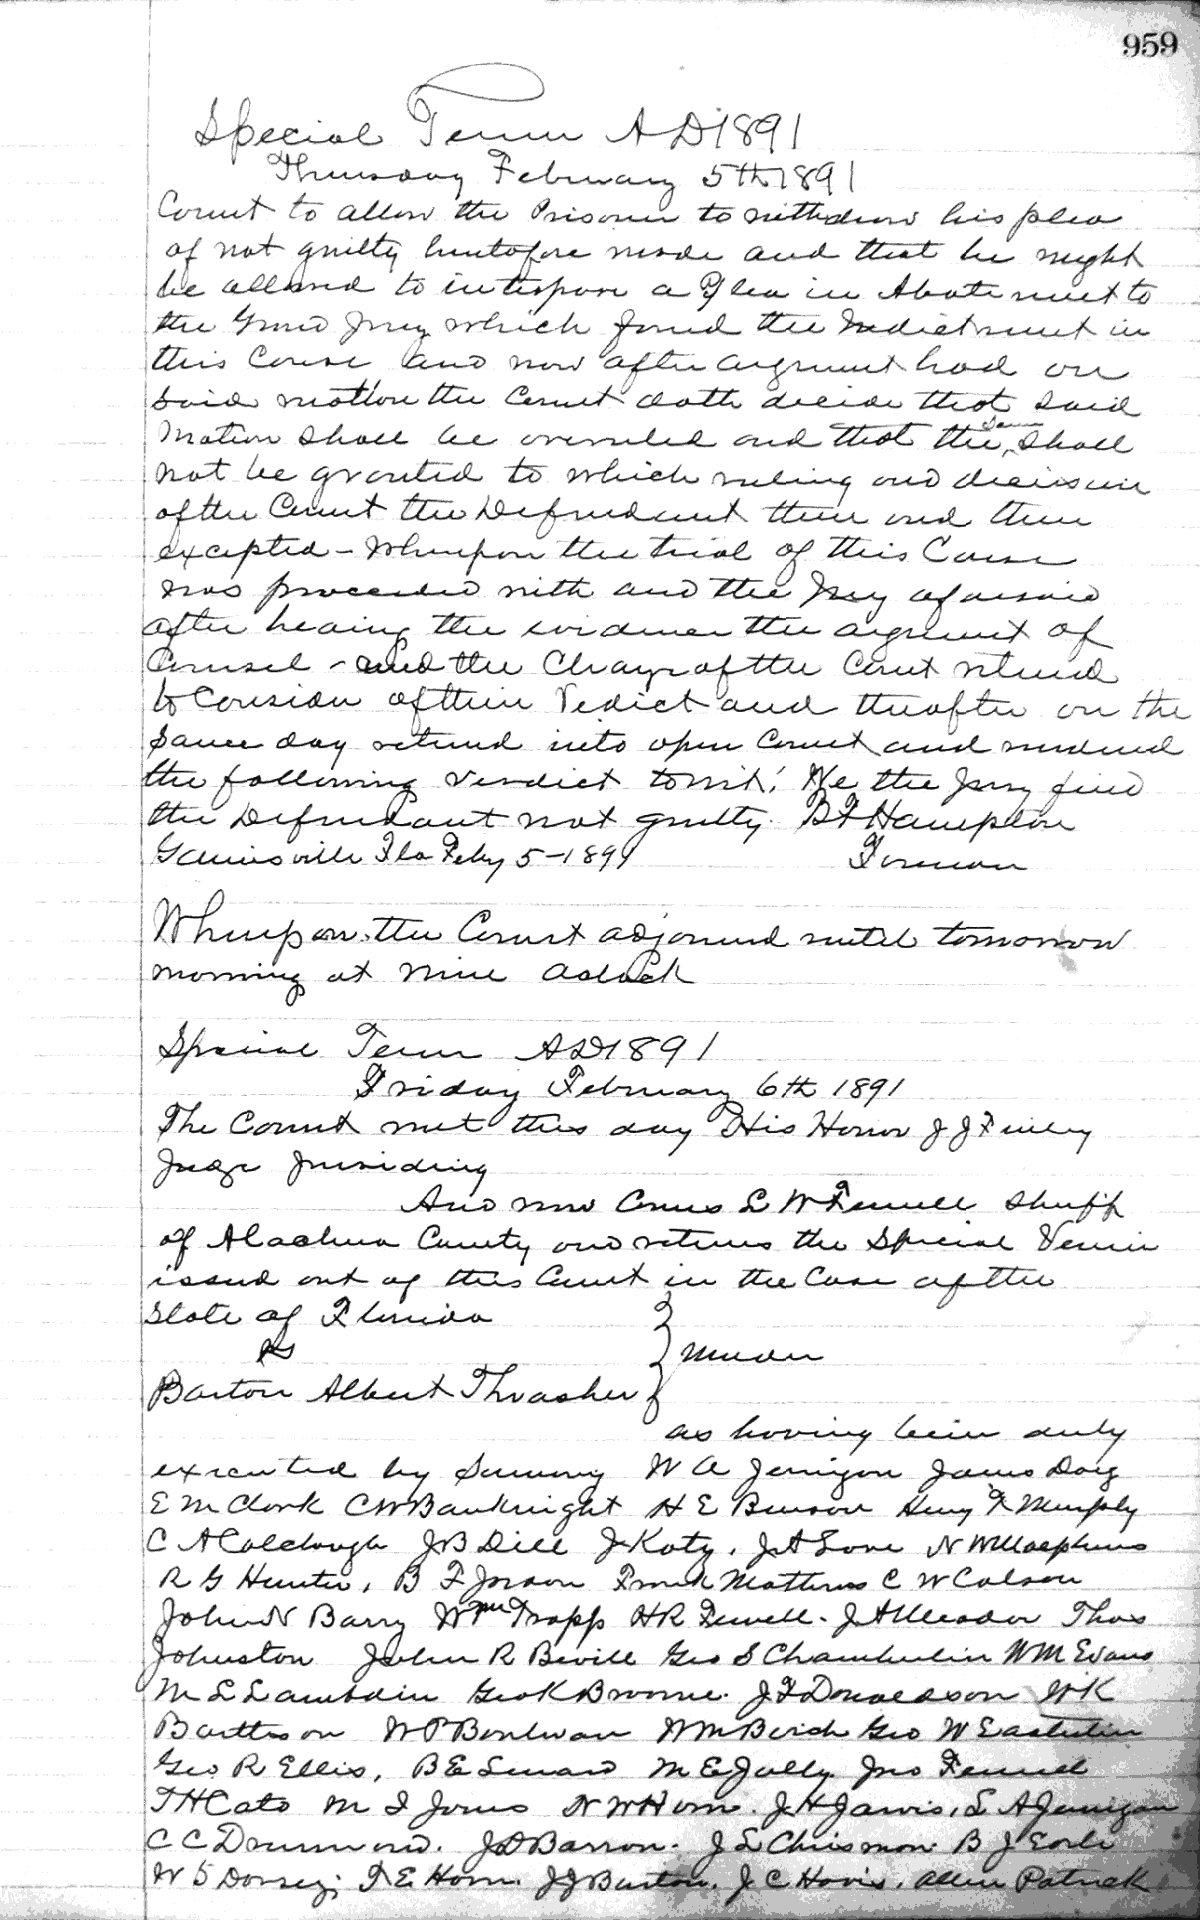 959
Special Term AD 1891
Thursday February 5th 1891
Court to allow the Prisoner to withdraw his plea
of not guilty heretofore made and that he might
be allowed to interpose a Plea in Abatement to
the Grand Jury which found the Indictment in
this Cause and now after argument had on
said motion the Court doth decide that said
Motion shall be overruled and that the same shall
not be granted to which ruling and decision
of the Court the Defendant then and there
excepted - Whereupon the trial of this Cause
was proceeded with and the Jury aforesaid
after hearing the evidence the argument of
Counsel - and the Charge of the Court retired
to Consider of their Verdict and thereafter on the
same day returned into open Court and rendered
the following verdict towit: We the Jury find
the Defendant not guilty. B F Hampton
Gainesville Fla Feby 5 - 1891 Foreman
Whereupon the Court adjourned until tomorrow
morning at nine oclock
Special Term AD 1891
Friday February 6th 1891
The Court met this day His Honor J J Finley
Judge presiding
And now Comes L W Fennell Sheriff
of Alachua County and returns the Special Venire
issued out of this Court in the Case of the
State of Florida
vs } Murder
Barton Albert Thrasher
as having been duly
executed by Summoning W A Jernigan James Doig
E M Clark C W Bauknight H E Benson Henry F Murphy
C A Colclough J B Dell J Katz, J A Love N W
R G Hunter, B F Jordan Frank Mathews C W Colson
John N Barry Wm Trapp H R Fewell. J A Meador Thos
Johnston John R Bevill Geo S Chamberlin W M Evans
M L Lambdin Geo K Broome. J F Donaldson W K
W P Boulware W M Geo W
Geo R Ellis, B E M E Jolly Jno Fennell
T H Cato M I Jones N W Horn. J H Jarvis, L A Jernigan
C C Drummond. J D Barron. J L Chrismon B J Earle
W S Dorsey; F E Horn J J Barton, J C Hovis, Allen Patrick